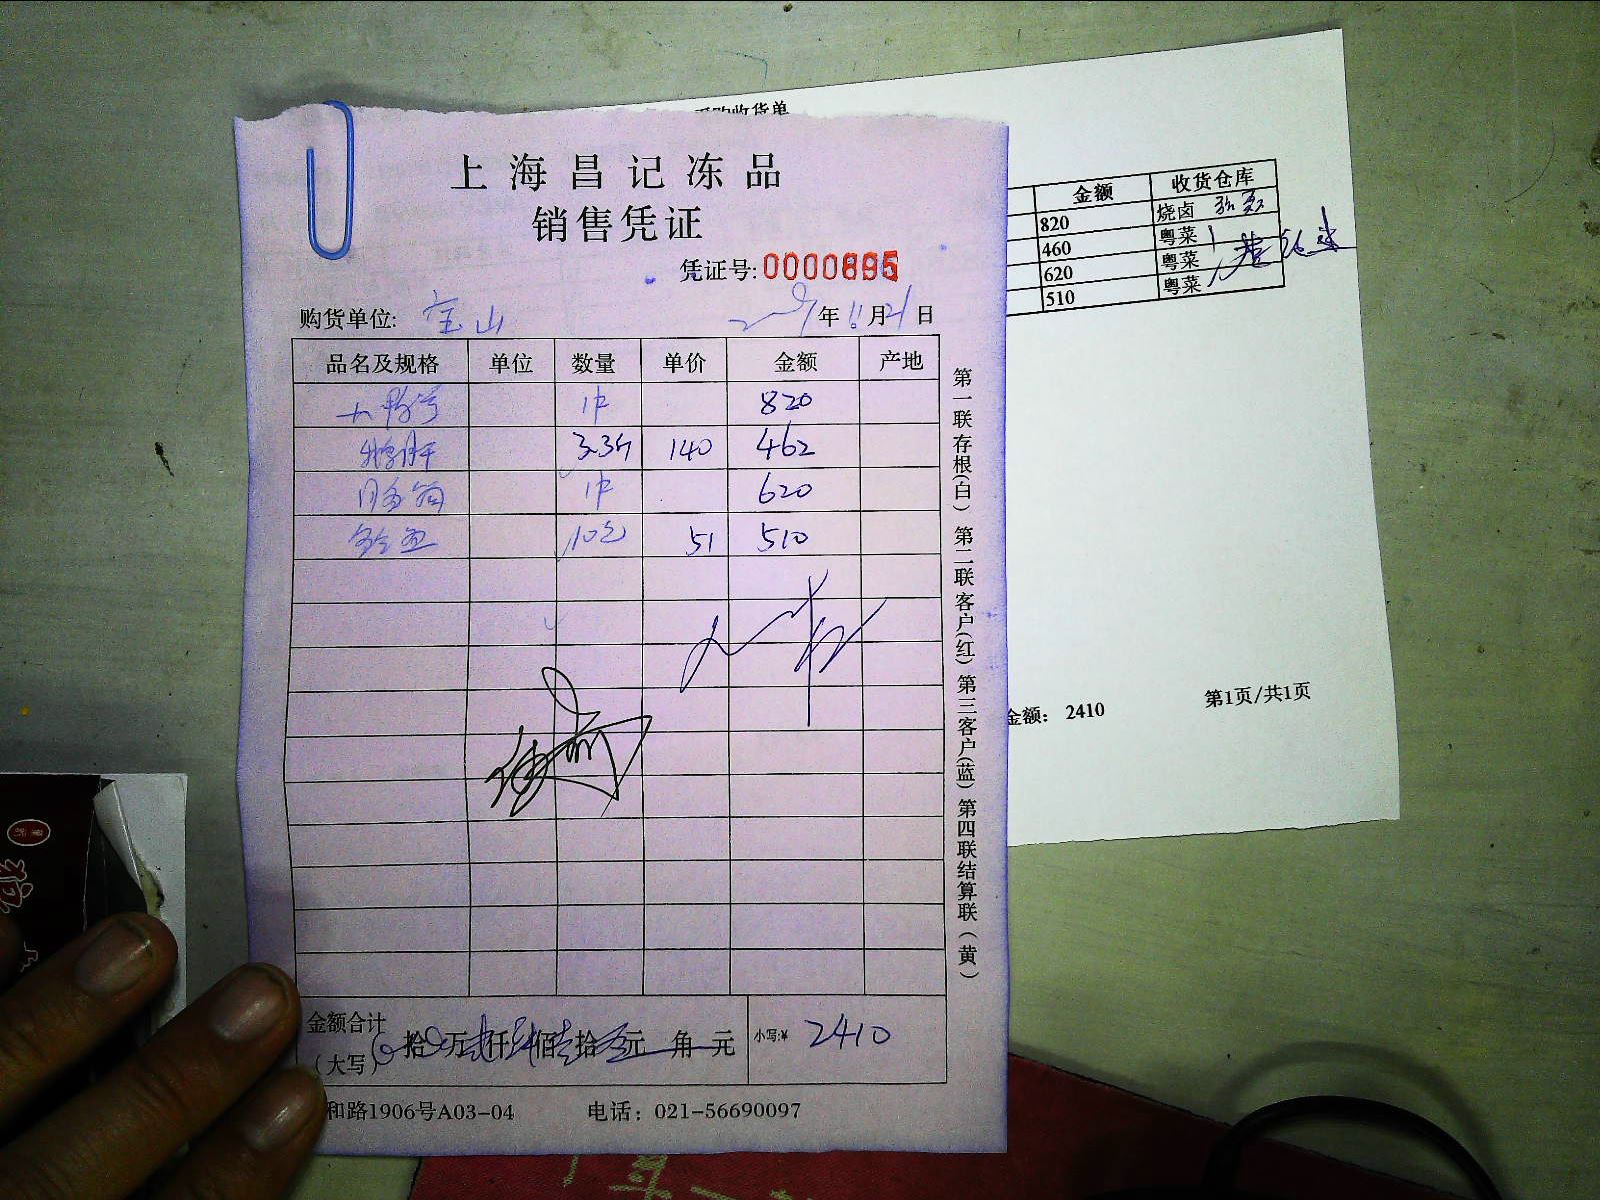 收货单
上海昌记冻品
销售凭证
凭证号:0000895
购货单位: 宝山 年11月21日
品名及规格 单位 数量 单价 金额 产地
1件 820
鹅肝 3.3斤 140 462
1件 620
10包 51 510
金额合计
(大写) 拾 万 仟 佰 拾 元 角 元 小写:¥ 2410
和路1906号A03-04 电话: 021-56690097
第一联存根(白) 第二联客户(红) 第三客户(蓝) 第四联结算联(黄)
金额 收货仓库
820 烧卤
460 粤菜
620 粤菜
510 粤菜
金额: 2410 第1页/共1页